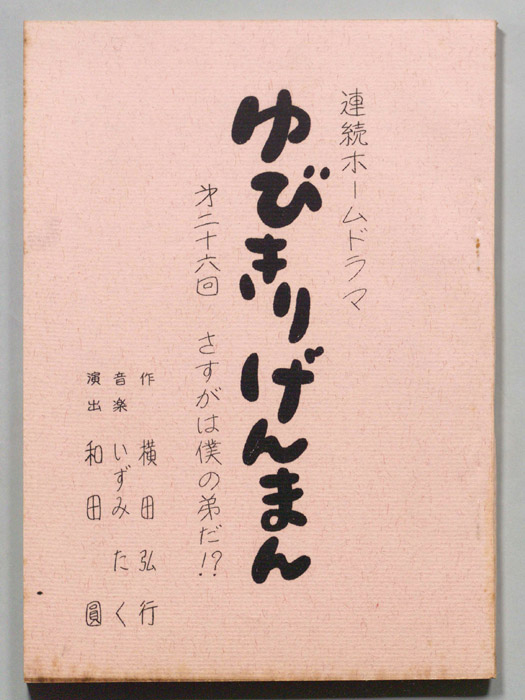 連続ホームドラマ
ゆびきりげんまん
第二十六回 さすがは僕の弟だ!?
作 横田弘行
音楽 いずみたく
演出 和田圓